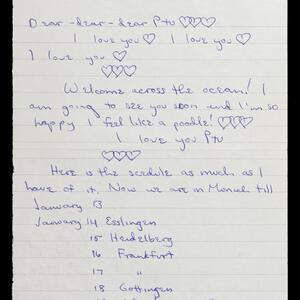 Dear-dear-dear Ptu ♡♡♡
I love you ♡ I love you ♡
I love you ♡
♡♡♡
Welcome across the ocean! I
am going to see you soon and I'm so
happy I feel like a poodle! ♡♡♡
I love you Ptu
♡♡♡
Here is the scedule as much as I
have of it. Now we are in Munich till
January 13
January 14 Esslingen
15 Heidelberg
16 Frankfurt
17 "
18 Gottingen